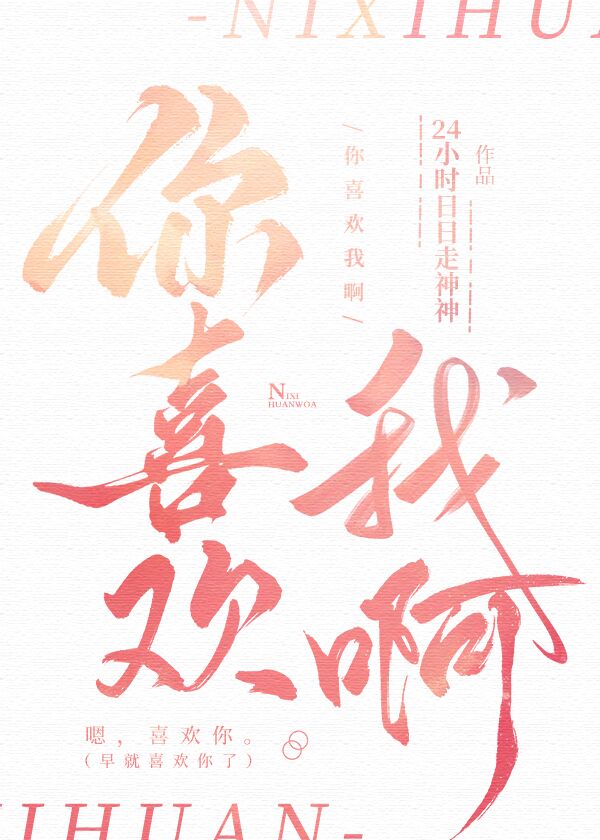 -NIXIHU
你喜欢我啊
/你喜欢我啊/
24小时日日走神神
作品
NIXI
HUANWOA
嗯，喜欢你。
(早就喜欢你了)
IHUAN-